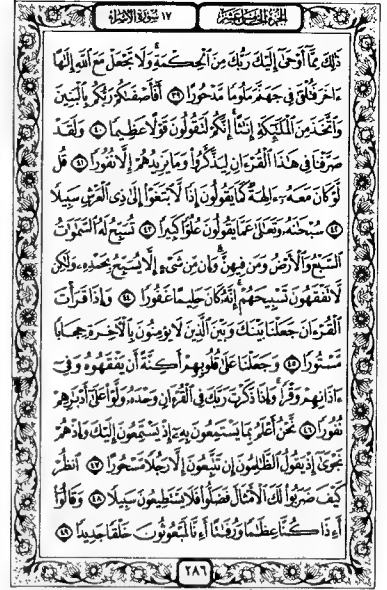 الجزء الخامس عشر ١٧ سورة الإسراء
ذَٰلِكَ مِمَّآ أَوْحَىٰٓ إِلَيْكَ رَبُّكَ مِنَ ٱلْحِكْمَةِ ۗ وَلَا تَجْعَلْ مَعَ ٱللَّهِ إِلَٰهًا
ءَاخَرَ فَتُلْقَىٰ فِى جَهَنَّمَ مَلُومًا مَّدْحُورًا ۝٣٩ أَفَأَصْفَىٰكُمْ رَبُّكُم بِٱلْبَنِينَ
وَٱتَّخَذَ مِنَ ٱلْمَلَٰٓئِكَةِ إِنَٰثًا ۚ إِنَّكُمْ لَتَقُولُونَ قَوْلًا عَظِيمًا ۝٤٠ وَلَقَدْ
صَرَّفْنَا فِى هَٰذَا ٱلْقُرْءَانِ لِيَذَّكَّرُوا۟ وَمَا يَزِيدُهُمْ إِلَّا نُفُورًا ۝٤١ قُل
لَّوْ كَانَ مَعَهُۥٓ ءَالِهَةٌ كَمَا يَقُولُونَ إِذًا لَّٱبْتَغَوْا۟ إِلَىٰ ذِى ٱلْعَرْشِ سَبِيلًا
۝٤٢ سُبْحَٰنَهُۥ وَتَعَٰلَىٰ عَمَّا يَقُولُونَ عُلُوًّا كَبِيرًا ۝٤٣ تُسَبِّحُ لَهُ ٱلسَّمَٰوَٰتُ
ٱلسَّبْعُ وَٱلْأَرْضُ وَمَن فِيهِنَّ ۚ وَإِن مِّن شَىْءٍ إِلَّا يُسَبِّحُ بِحَمْدِهِۦ وَلَٰكِن
لَّا تَفْقَهُونَ تَسْبِيحَهُمْ ۗ إِنَّهُۥ كَانَ حَلِيمًا غَفُورًا ۝٤٤ وَإِذَا قَرَأْتَ
ٱلْقُرْءَانَ جَعَلْنَا بَيْنَكَ وَبَيْنَ ٱلَّذِينَ لَا يُؤْمِنُونَ بِٱلْءَاخِرَةِ حِجَابًا
مَّسْتُورًا ۝٤٥ وَجَعَلْنَا عَلَىٰ قُلُوبِهِمْ أَكِنَّةً أَن يَفْقَهُوهُ وَفِىٓ
ءَاذَانِهِمْ وَقْرًا ۚ وَإِذَا ذَكَرْتَ رَبَّكَ فِى ٱلْقُرْءَانِ وَحْدَهُۥ وَلَّوْا۟ عَلَىٰٓ أَدْبَٰرِهِمْ
نُفُورًا ۝٤٦ نَّحْنُ أَعْلَمُ بِمَا يَسْتَمِعُونَ بِهِۦٓ إِذْ يَسْتَمِعُونَ إِلَيْكَ وَإِذْ هُمْ
نَجْوَىٰٓ إِذْ يَقُولُ ٱلظَّٰلِمُونَ إِن تَتَّبِعُونَ إِلَّا رَجُلًا مَّسْحُورًا ۝٤٧ ٱنظُرْ
كَيْفَ ضَرَبُوا۟ لَكَ ٱلْأَمْثَالَ فَضَلُّوا۟ فَلَا يَسْتَطِيعُونَ سَبِيلًا ۝٤٨ وَقَالُوٓا۟
أَءِذَا كُنَّا عِظَٰمًا وَرُفَٰتًا أَءِنَّا لَمَبْعُوثُونَ خَلْقًا جَدِيدًا ۝٤٩
٢٨٦